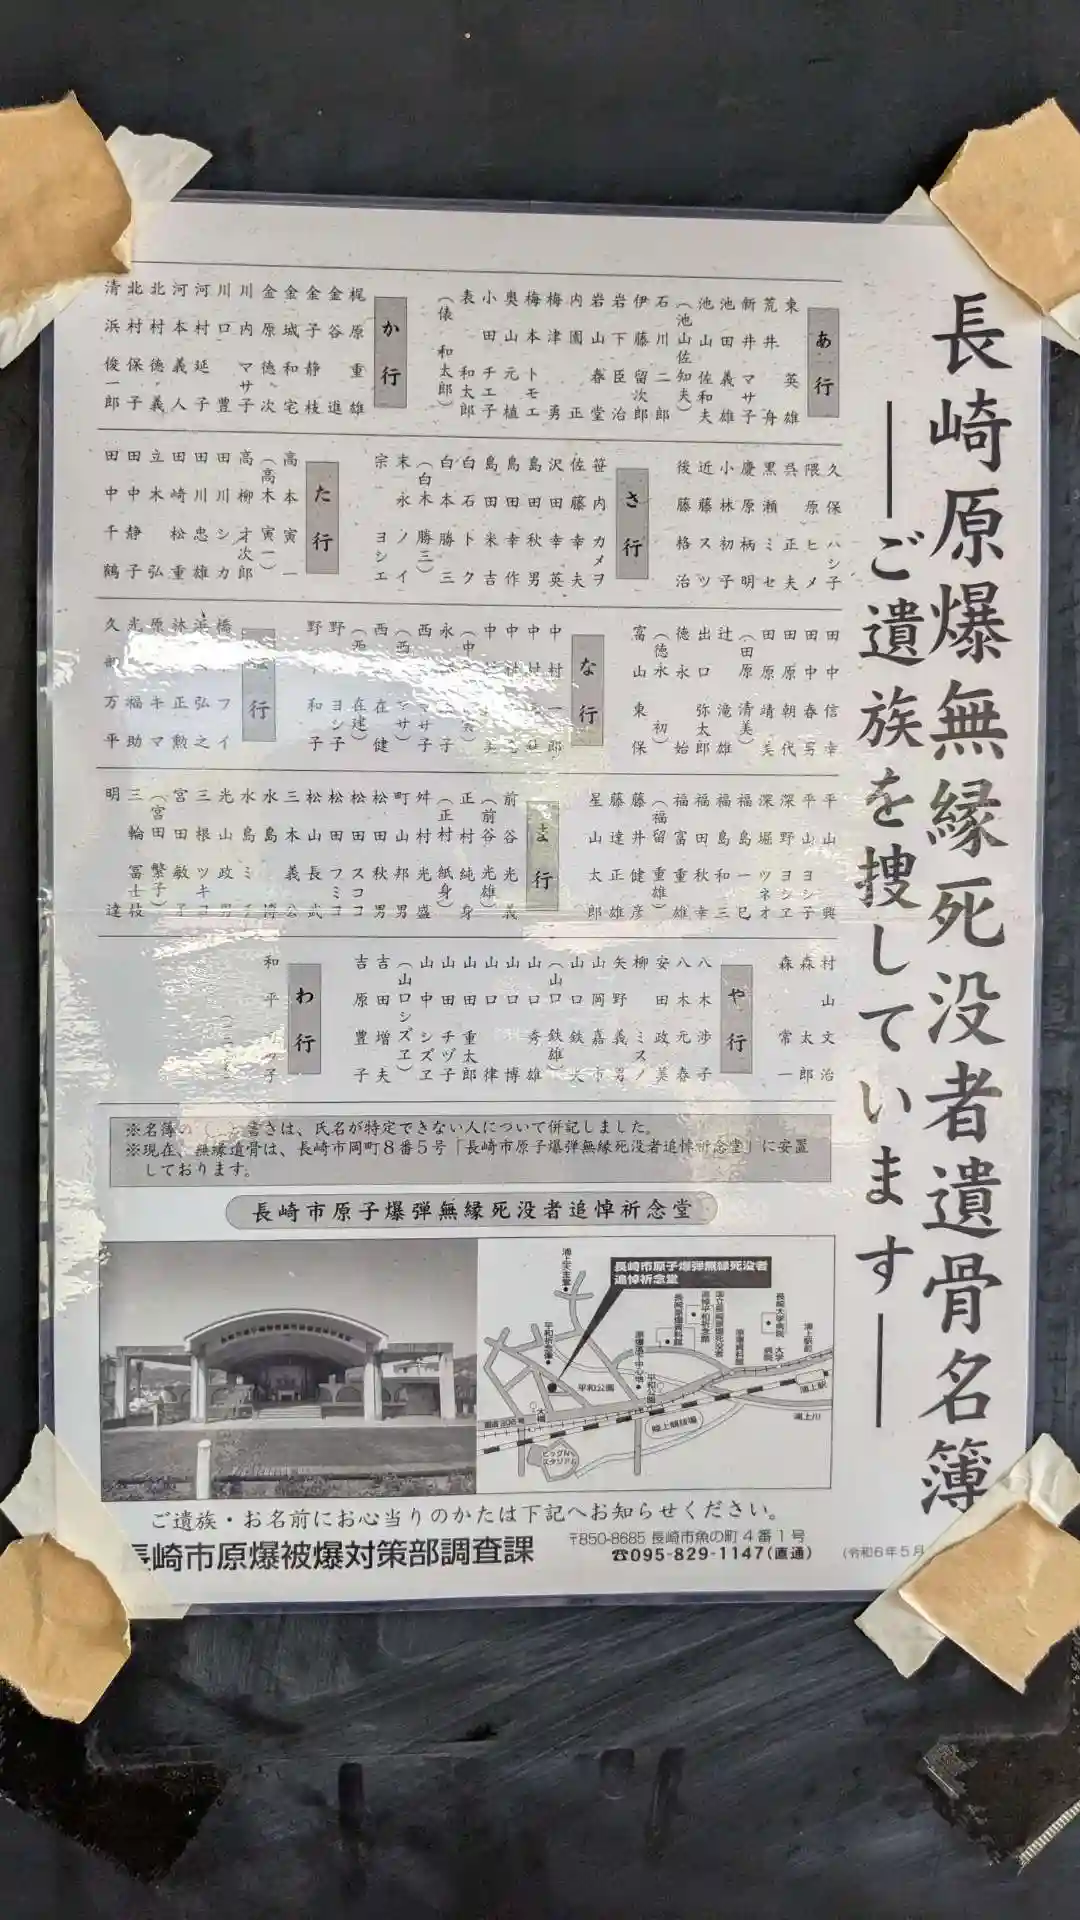 長崎原爆無縁死没者遺骨名簿
―ご遺族を捜しています―
あ行
東 英雄
荒井 舟
新井 マサ子
池田 義雄
池山 佐和夫
(池山 佐知夫)
石川 二郎
伊藤 留次郎
岩下 臣治
岩山 春堂
内園 正
梅津 勇
梅本 トモエ
奥山 元植
小田 チエ子
表 和太郎
(俵 和太郎)
か行
梶原 重雄
金谷 進
金子 静枝
金城 和宅
金原 徳次
川内 マサ子
川口 豊
河村 延子
河本 義人
北村 徳義
北村 保子
清浜 俊一郎
久保 ハシ子
隈原 ヒメ
呉 正夫
黒瀬 ミセ
慶原 柄明
小林 初子
近藤 スツ
後藤 格治
さ行
笹内 カメヲ
佐藤 幸夫
沢田 幸英
島田 秋男
島田 幸作
島田 米吉
白石 トク
白本 勝三
(白木 勝三)
末永 ノイ
宗 ヨシエ
た行
高本 寅一
(高木 寅一)
高柳 才次郎
田川 シカ
田川 忠雄
田崎 松重
立木 弘
田中 静子
田中 千鶴
田中 信幸
田中 春男
田原 朝代
田原 靖美
(田原 清美)
辻 滝雄
出口 弥太郎
徳永 始
(徳永 初)
富山 東保
な行
中村 一郎
野 ヨシ子
野 和子
行
橋 フイ
浜 弘之
林 正勲
原 キマ
光 福助
久 万平
平山 興
平山 ヨシ子
深野 ヨシヱ
深堀 ツネオ
福島 一巳
福島 和三
福田 秋幸
福富 重雄
(福留 重雄)
藤井 健彦
藤達 正雄
星山 太郎
ま行
前谷 光義
(前谷 光雄)
正村 純身
(正村 紙身)
舛村 光盛
町山 邦男
松田 秋男
松田 スココ
松田 フミコ
松山 長武
三木 義公
水島 博
水島 ミ
光山 政男
三根 ツキコ
宮田 敏子
(宮田 繁子)
三輪 冨士枝
明 達
村山 文治
森 太郎
森 常一
や行
八木 渉子
八木 元春
安田 政美
柳 ミスノ
矢野 義男
山岡 嘉市
山口 鉄夫
(山口 鉄雄)
山口 秀雄
山口 博
山口 律
山田 重太郎
山田 チヅ子
山中 シズヱ
(山口 シズヱ)
吉田 増夫
吉原 豊子
わ行
和平 子
※名簿の 書きは、氏名が特定できない人について併記しました。
※現在、無縁遺骨は、長崎市岡町8番5号「長崎市原子爆弾無縁死没者追悼祈念堂」に安置
しております。
長崎市原子爆弾無縁死没者追悼祈念堂
長崎市原子爆弾無縁死没者
追悼祈念堂
浦上天主堂
平和祈念像
平和公園
大橋
ビッグN
スタジアム
陸上競技場
原爆落下中心地
平和公園
長崎原爆資料館
国立長崎原爆死没者
追悼平和祈念館
原爆資料館
長崎大学病院
大学病院
浦上駅前
浦上駅
浦上川
ご遺族・お名前にお心当りのかたは下記へお知らせください。
長崎市原爆被爆対策部調査課
〒850-8685 長崎市魚の町4番1号
☎095-829-1147(直通)
(令和6年5月